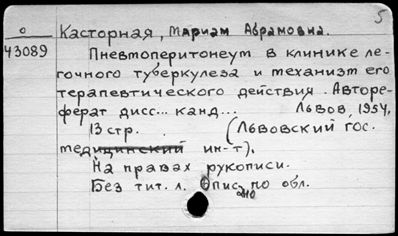 5
о Касторная, Мариам Абрамовна.
43089 Пневмоперитонеум в клинике ле-
гочного туберкулеза и механизм его
терапевтического действия. Авторе-
ферат дисс... канд... Львов, 1954.
13 стр. (Львовский гос.
медицинский ин-т).
На правах рукописи.
Без тит. л. Опис. по обл.